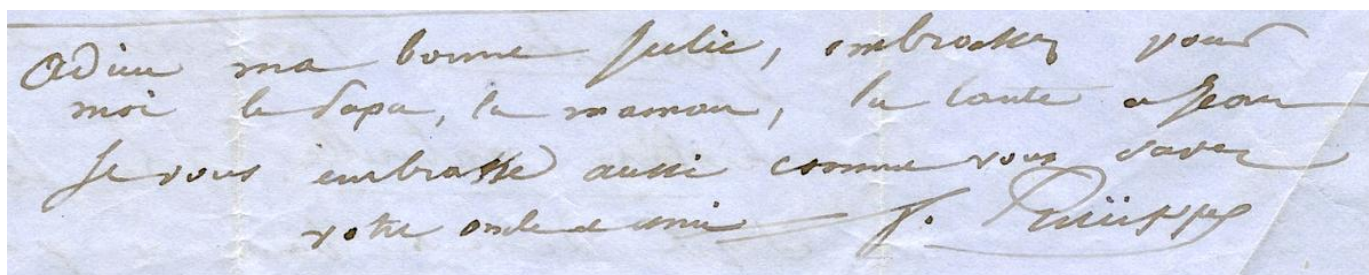 Adieu ma bonne Julie, embrassez pour
moi le papa, la maman, la tante et Jean
Je vous embrasse aussi comme vous savez
votre oncle et ami J.